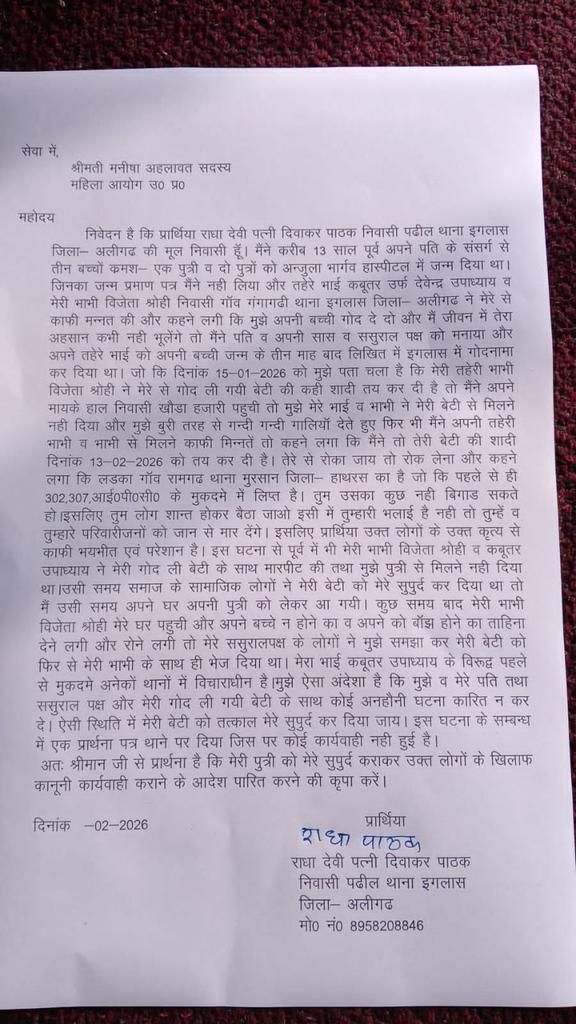 सेवा में,
श्रीमती मनीषा अहलावत सदस्य
महिला आयोग उ0 प्र0
महोदय
निवेदन है कि प्रार्थिया राधा देवी पत्नी दिवाकर पाठक निवासी पढील थाना इगलास
जिला– अलीगढ की मूल निवासी हूँ। मैंने करीब 13 साल पूर्व अपने पति के संसर्ग से
तीन बच्चों कमश– एक पुत्री व दो पुत्रों को अन्जुला भार्गव हास्पीटल में जन्म दिया था।
जिनका जन्म प्रमाण पत्र मैंने नही लिया और तहेरे भाई कबूतर उर्फ देवेन्द्र उपाध्याय व
मेरी भाभी विजेता श्रोही निवासी गॉव गंगागढी थाना इगलास जिला– अलीगढ ने मेरे से
काफी मन्नत की और कहने लगी कि मुझे अपनी बच्ची गोद दे दो और मैं जीवन में तेरा
अहसान कभी नही भूलेंगे तो मैंने पति व अपनी सास व ससुराल पक्ष को मनाया और
अपने तहेरे भाई को अपनी बच्ची जन्म के तीन माह बाद लिखित में इगलास में गोदनामा
कर दिया था। जो कि दिनांक 15-01-2026 को मुझे पता चला है कि मेरी तहेरी भाभी
विजेता श्रोही ने मेरे से गोद ली गयी बेटी की कही शादी तय कर दी है तो मैंने अपने
मायके हाल निवासी खौडा हजारी पहुची तो मुझे मेरे भाई व भाभी ने मेरी बेटी से मिलने
नही दिया और मुझे बुरी तरह से गन्दी गन्दी गालियॉ देते हुए फिर भी मैंने अपनी तहेरी
भाभी व भाभी से मिलने काफी मिन्नतें तो कहने लगा कि मैंने तो तेरी बेटी की शादी
दिनांक 13-02-2026 को तय कर दी है। तेरे से रोका जाय तो रोक लेना और कहने
लगा कि लडका गॉव रामगढ थाना मुरसान जिला– हाथरस का है जो कि पहले से ही
302,307,आई0पी0सी0 के मुकदमे में लिप्त है। तुम उसका कुछ नही बिगाड सकते
हो।इसलिए तुम लोग शान्त होकर बैठा जाओ इसी में तुम्हारी भलाई है नही तो तुम्हें व
तुम्हारे परिवारीजनों को जान से मार देंगे। इसलिए प्रार्थिया उक्त लोगों के उक्त कृत्य से
काफी भयभीत एवं परेशान है। इस घटना से पूर्व में भी मेरी भाभी विजेता श्रोही व कबूतर
उपाध्याय ने मेरी गोद ली बेटी के साथ मारपीट की तथा मुझे पुत्री से मिलने नही दिया
था।उसी समय समाज के सामाजिक लोगों ने मेरी बेटी को मेरे सुपुर्द कर दिया था तो
मैं उसी समय अपने घर अपनी पुत्री को लेकर आ गयी। कुछ समय बाद मेरी भाभी
विजेता श्रोही मेरे घर पहुची और अपने बच्चे न होने का व अपने को बॉझ होने का ताहिना
देने लगी और रोने लगी तो मेरे ससुरालपक्ष के लोगों ने मुझे समझा कर मेरी बेटी को
फिर से मेरी भाभी के साथ ही भेज दिया था। मेरा भाई कबूतर उपाध्याय के विरूद्व पहले
से मुकदमे अनेकों थानों में विचाराधीन है।मुझे ऐसा अंदेशा है कि मुझे व मेरे पति तथा
ससुराल पक्ष और मेरी गोद ली गयी बेटी के साथ कोई अनहौनी घटना कारित न कर
दे। ऐसी स्थिति में मेरी बेटी को तत्काल मेरे सुपुर्द कर दिया जाय। इस घटना के सम्बन्ध
में एक प्रार्थना पत्र थाने पर दिया जिस पर कोई कार्यवाही नही हुई है।
अतः श्रीमान जी से प्रार्थना है कि मेरी पुत्री को मेरे सुपुर्द कराकर उक्त लोगों के खिलाफ
कानूनी कार्यवाही कराने के आदेश पारित करने की कृपा करें।
दिनांक –02-2026
प्रार्थिया
राधा पाठक
राधा देवी पत्नी दिवाकर पाठक
निवासी पढील थाना इगलास
जिला– अलीगढ
मो0 नं0 8958208846